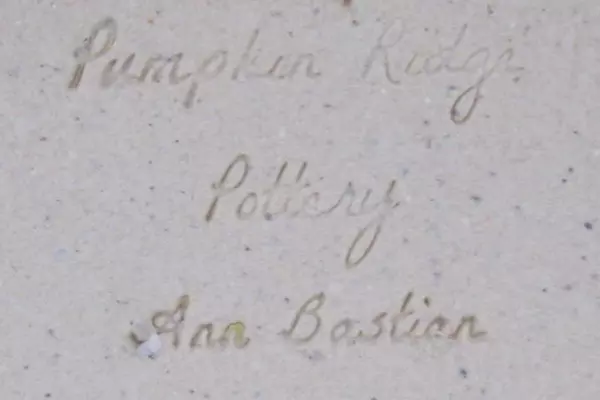 Pumpkin Ridge
Pottery
Ann Bastian